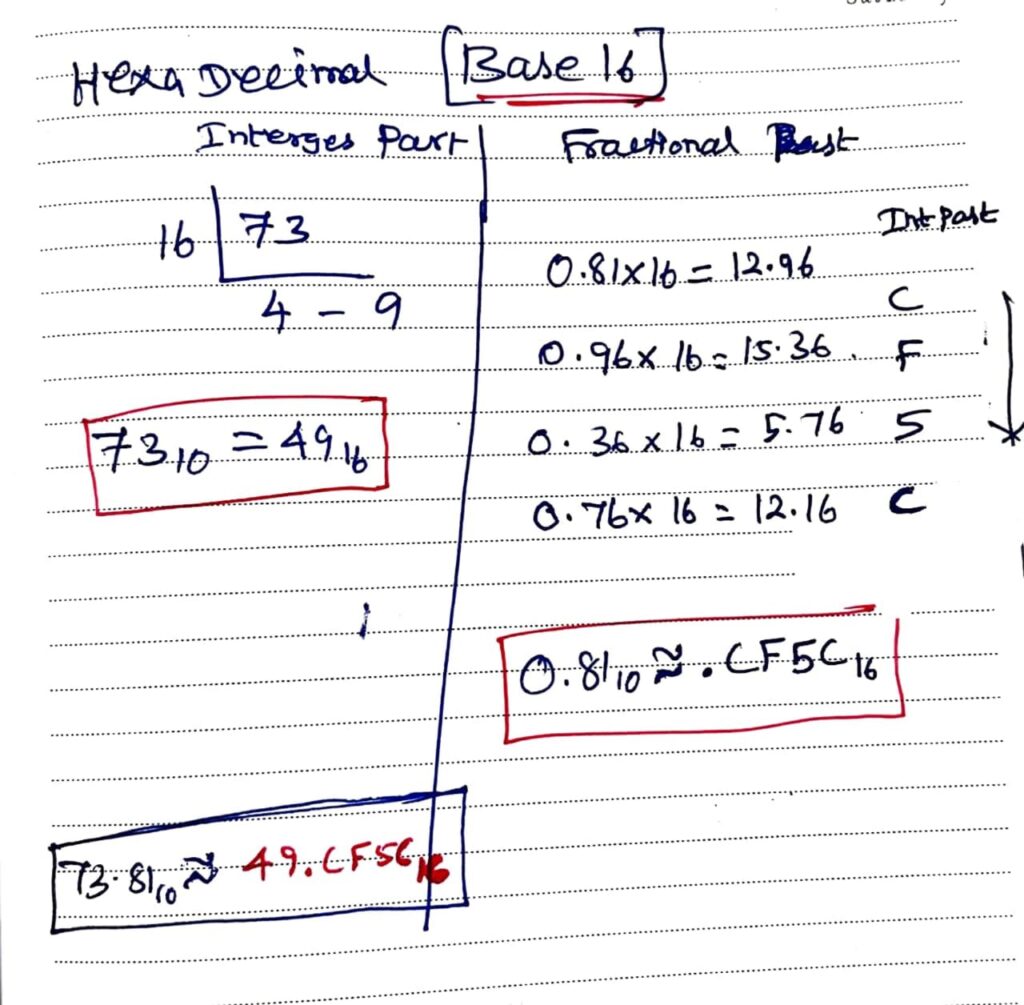 Hexa Decimal [Base 16]
Interges Part
16 73
4 - 9
73₁₀ = 49₁₆
Fractional Part
Int Part
0.81 x 16 = 12.96
C
0.96 x 16 = 15.36. F
0.36 x 16 = 5.76 5
0.76 x 16 = 12.16 C
0.81₁₀ ≈ .CF5C₁₆
73.81₁₀ ≈ 49.CF5C₁₆